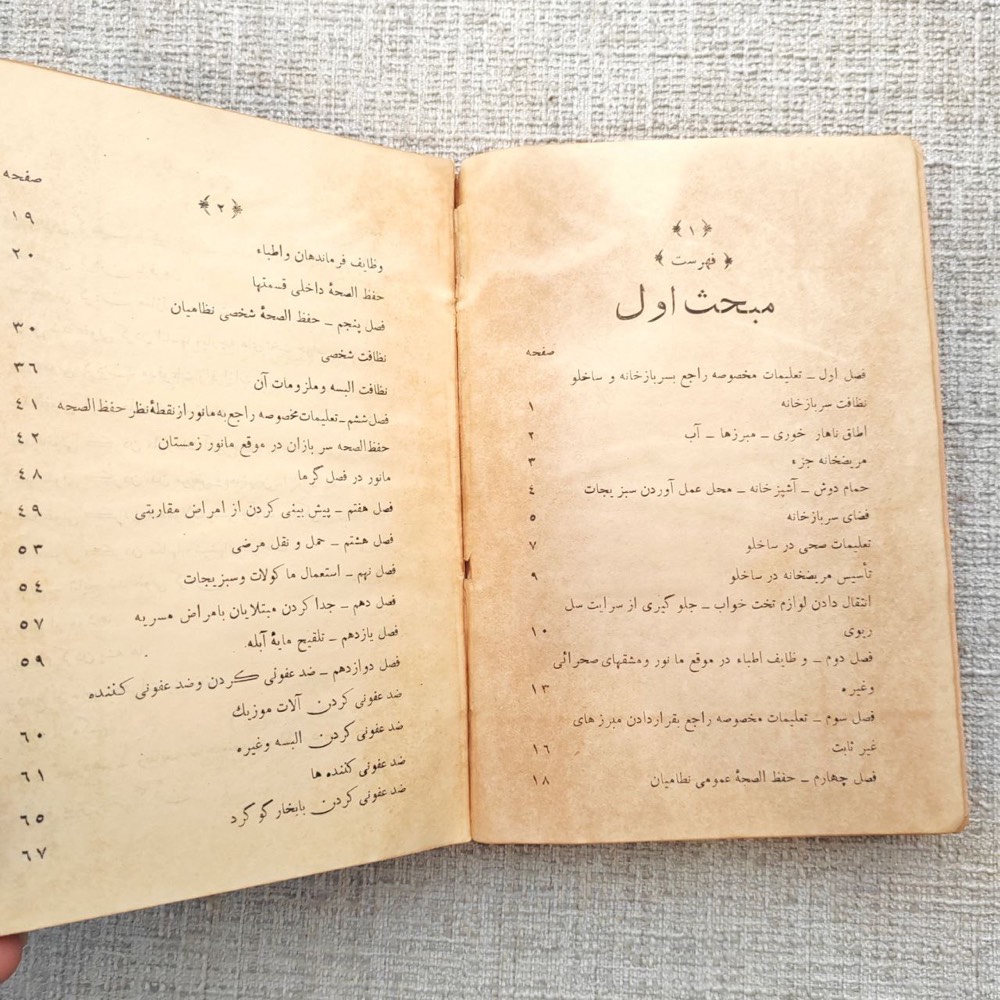 ﴿۱﴾
﴿ فهرست ﴾
مبحث اول
صفحه
فصل اول ــ تعلیمات مخصوصه راجع بسربازخانه و ساخلو
نظافت سربازخانه ۱
اطاق ناهار خوری ــ مبرزها ــ آب ۲
مریضخانه جزء ۳
حمام دوش ــ آشپزخانه ــ محل عمل آوردن سبزیجات ٤
فضای سربازخانه ٥
تعلیمات صحی در ساخلو ۷
تأسیس مریضخانه در ساخلو ۹
انتقال دادن لوازم تخت خواب ــ جلوگیری از سرایت سل
ریوی ۱۰
فصل دوم ــ وظایف اطباء در موقع مانور ومشقهای صحرائی
وغیره ۱۳
فصل سوم ــ تعلیمات مخصوصه راجع بقراردادن مبرزهای
غیر ثابت ۱٦
فصل چهارم ــ حفظ الصحۀ عمومی نظامیان ۱۸
﴿۲﴾
صفحه
وظایف فرماندهان واطباء ۱۹
حفظ الصحۀ داخلی قسمتها ۲۰
فصل پنجم ــ حفظ الصحۀ شخصی نظامیان
نظافت شخصی ۳۰
نظافت البسه وملزومات آن ۳٦
فصل ششم ــ تعلیمات مخصوصه راجع به مانور از نقطۀ نظر حفظ الصحه ٤۱
حفظ الصحه سربازان در موقع مانور زمستان ٤۲
مانور در فصل گرما ٤۸
فصل هفتم ــ پیش بینی کردن از امراض مقاربتی ٤۹
فصل هشتم ــ حمل و نقل مرضی ٥۳
فصل نهم ــ استعمال ماکولات وسبزیجات ٥٤
فصل دهم ــ جدا کردن مبتلایان بامراض مسریه ٥۷
فصل یازدهم ــ تلقیح مایۀ آبله ٥۹
فصل دوازدهم ــ ضد عفونی کردن وضد عفونی کننده
ضد عفونی کردن آلات موزیك ٦۰
ضد عفونی کردن البسه وغیره ٦۱
ضد عفونی کننده ها ٦٥
ضد عفونی کردن بابخار گوگرد ٦۷